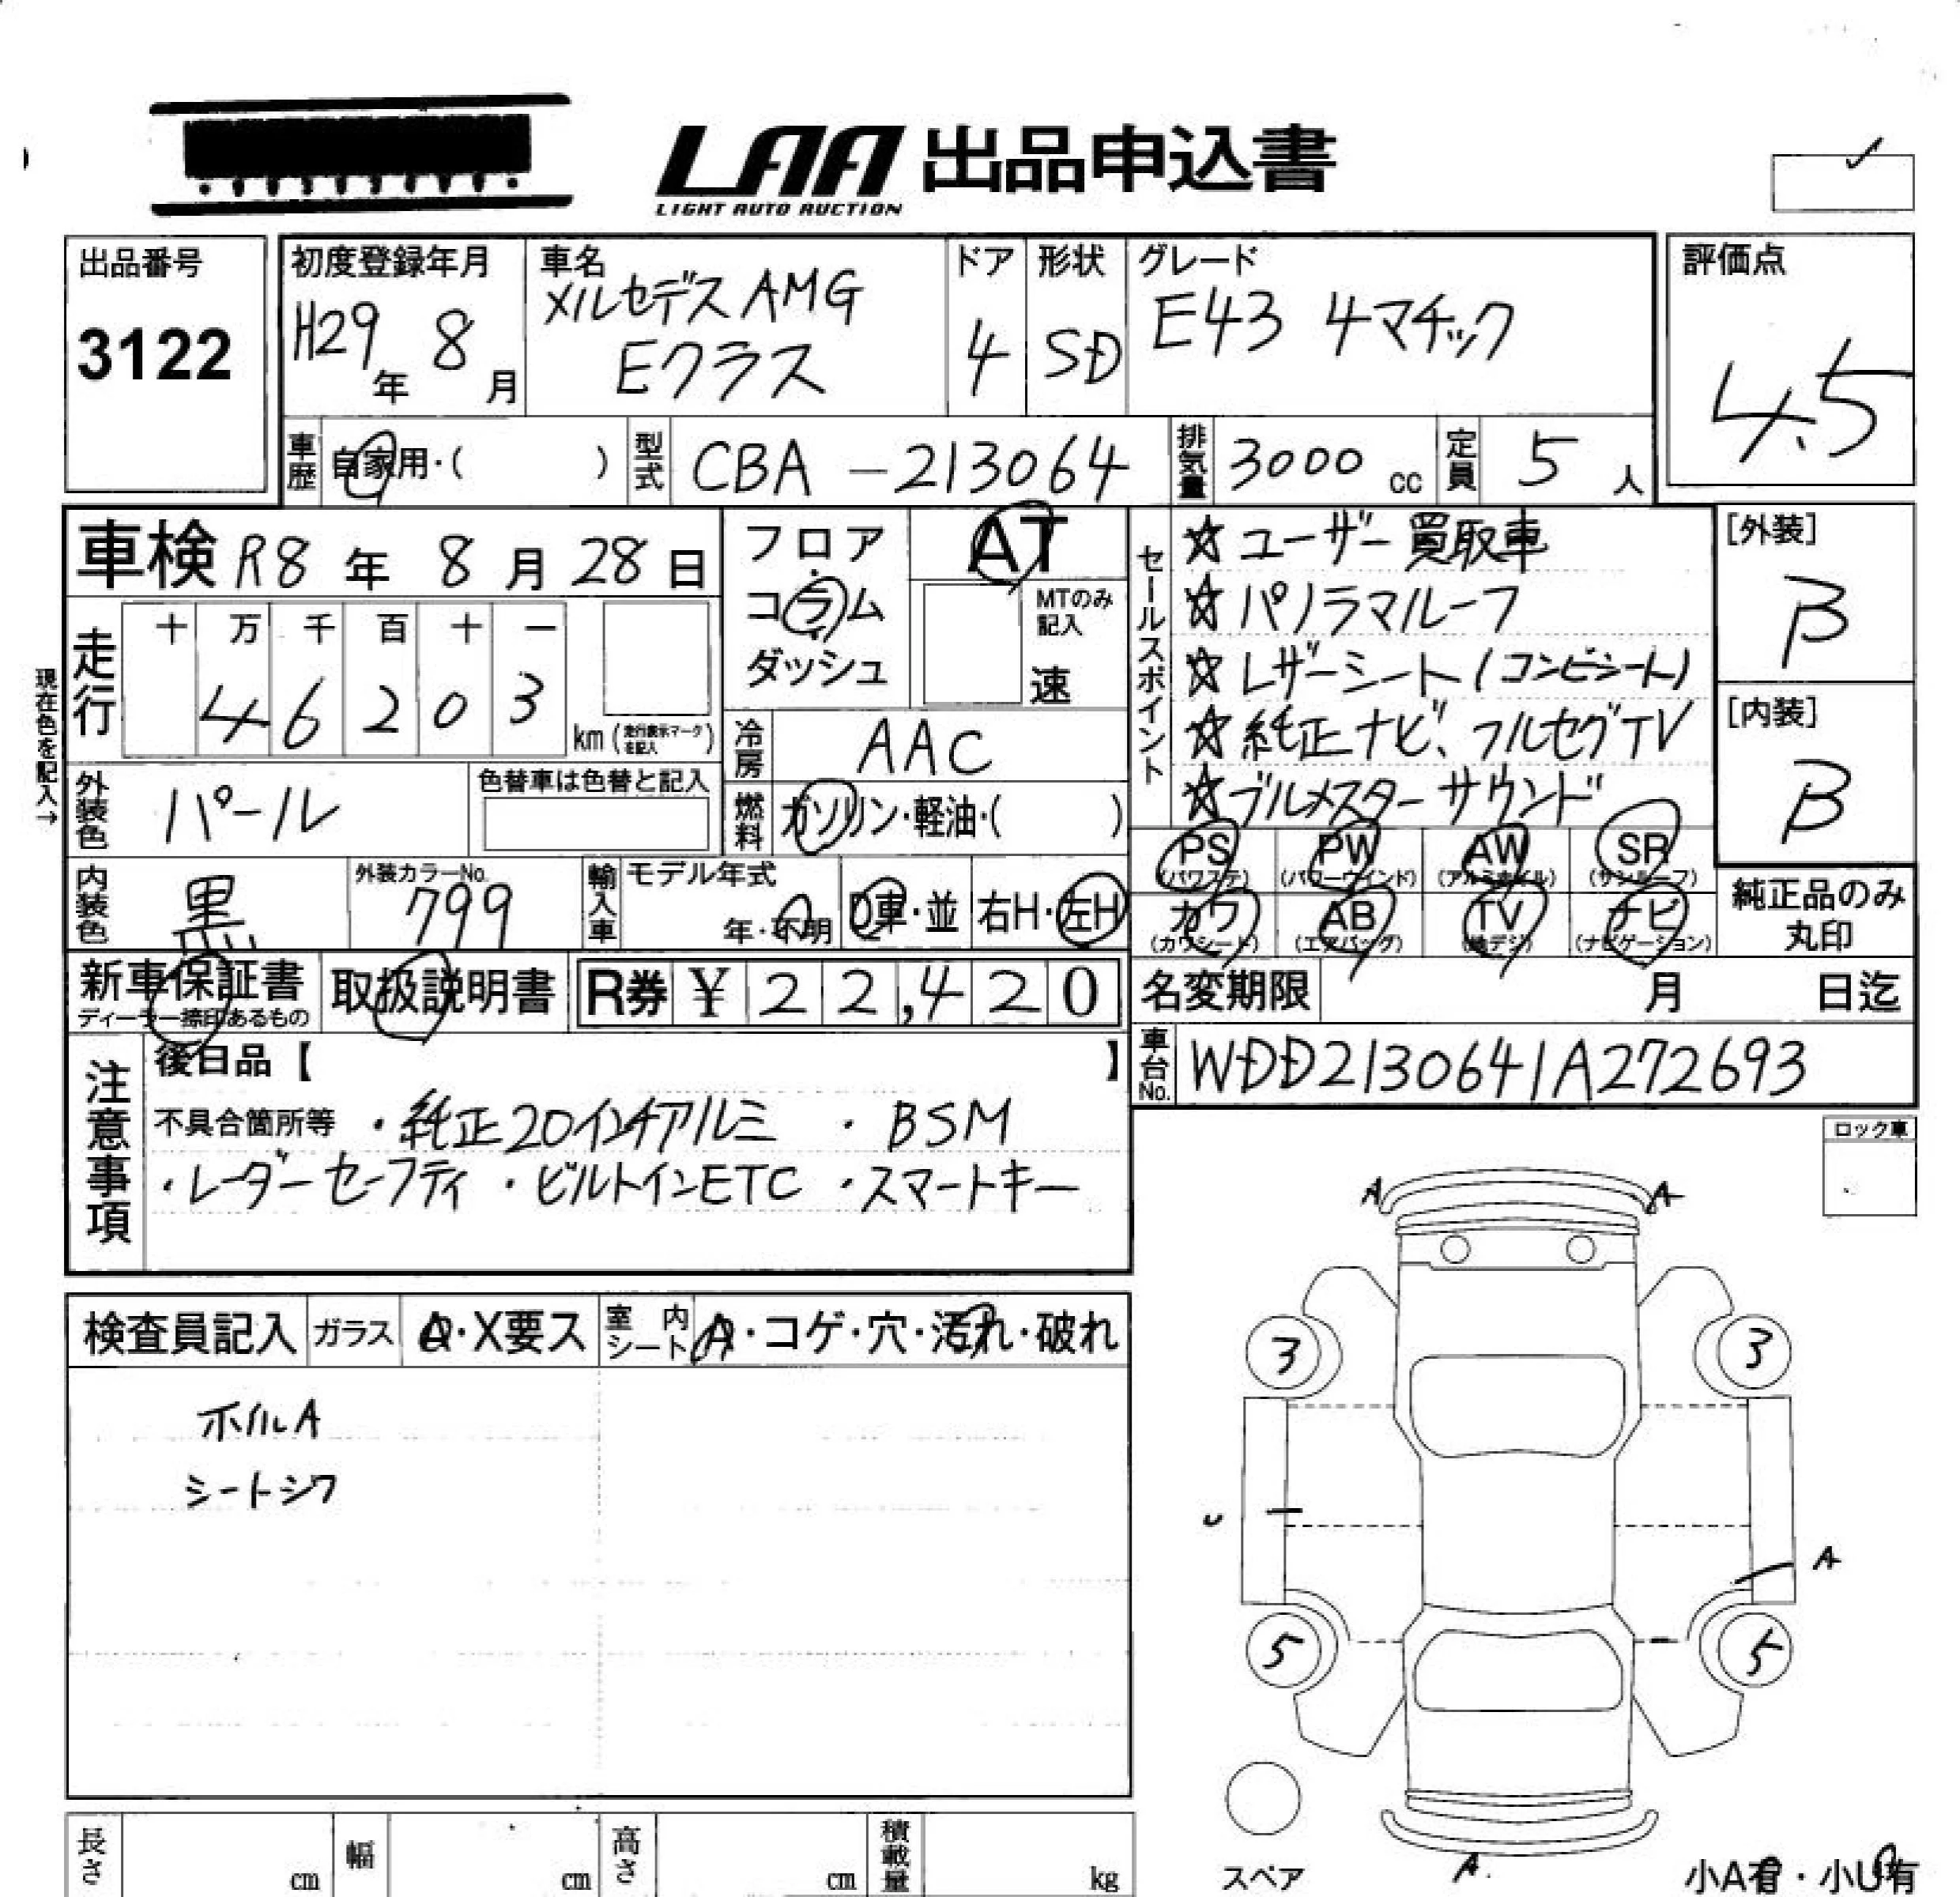 LAA 出品申込書
LIGHT AUTO AUCTION
出品番号
3122
初度登録年月
H29年 8月
車名
メルセデスAMG
Eクラス
ドア
4
形状
SD
グレード
E43 4マチック
評価点
4.5
車歴 自家用・( )
型式 CBA-213064
排気量 3000 cc
定員 5人
車検 R8年 8月 28日
フロア
コラム
ダッシュ
AT
MTのみ
記入
速
セールスポイント
☆ユーザー買取車
☆パノラマルーフ
☆レザーシート(コンビシート)
☆純正ナビ、フルセグTV
☆ブルメスターサウンド
[外装]
B
[内装]
B
現在色を記入→
走行
十 万 千 百 十 一
4 6 2 0 3
km (走行表示マークを記入)
冷房 AAC
外装色 パール
色替車は色替と記入
燃料 ガソリン・軽油・( )
PS (パワステ)
PW (パワーウインド)
AW (アルミホイル)
SR (サンルーフ)
カワ (カワシート)
AB (エアバッグ)
TV (地デジ)
ナビ (ナビゲーション)
純正品のみ
丸印
内装色 黒
外装カラーNo.
799
輸入車 モデル年式
年・不明
D車・並
右H・左H
新車保証書
ディーラー捺印あるもの
取扱説明書
R券 ¥ 22,420
名変期限 月 日迄
車台No. WDD2130641A272693
注意事項
後日品【 】
不具合箇所等 ・純正20インチアルミ ・BSM
・レーダーセーフティ ・ビルトインETC ・スマートキー
ロック車
A A
検査員記入
ガラス A・X要ス
室内シート A・コゲ・穴・汚れ・破れ
ホイルA
シートシワ
3 3
U
A
5 5
スペア
A
小A有・小U有
長さ cm
幅 cm
高さ cm
積載量 kg